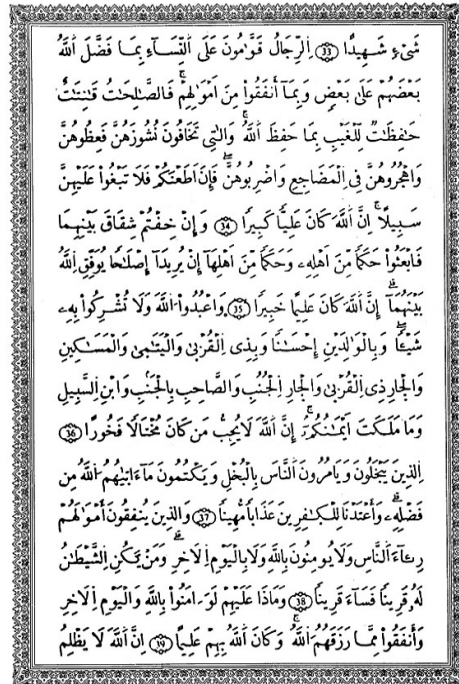 شَيْءٍ شَهِيدًا ٣٣ اِ۬لرِّجَالُ قَوَّٰمُونَ عَلَى اَ۬لنِّسَآءِ بِمَا فَضَّلَ اَ۬للَّهُ
بَعْضَهُمْ عَلَىٰ بَعْضٍ وَبِمَآ أَنفَقُوا۟ مِنَ اَمْوَٰلِهِمْ فَالصَّٰلِحَٰتُ قَٰنِتَٰتٌ
حَٰفِظَٰتٌ لِّلْغَيْبِ بِمَا حَفِظَ اَ۬للَّهُ وَالَّٰتِي تَخَافُونَ نُشُوزَهُنَّ فَعِظُوهُنَّ
وَاهْجُرُوهُنَّ فِي اِ۬لْمَضَاجِعِ وَاضْرِبُوهُنَّ فَإِنَ اَطَعْنَكُمْ فَلَا تَبْغُوا۟ عَلَيْهِنَّ
سَبِيلًا اِنَّ اَ۬للَّهَ كَانَ عَلِيًّا كَبِيرًا ٣٤ وَإِنْ خِفْتُمْ شِقَاقَ بَيْنِهِمَا
فَابْعَثُوا۟ حَكَمًا مِّنَ اَهْلِهِۦ وَحَكَمًا مِّنَ اَهْلِهَآ إِنْ يُّرِيدَآ إِصْلَٰحًا يُوَفِّقِ اِ۬للَّهُ
بَيْنَهُمَآ إِنَّ اَ۬للَّهَ كَانَ عَلِيمًا خَبِيرًا ٣٥ وَاعْبُدُوا۟ اُ۬للَّهَ وَلَا تُشْرِكُوا۟ بِهِۦ
شَيْـًٔا وَبِالْوَٰلِدَيْنِ إِحْسَٰنًا وَبِذِي اِ۬لْقُرْبَىٰ وَالْيَتَٰمَىٰ وَالْمَسَٰكِينِ
وَالْجَارِ ذِي اِ۬لْقُرْبَىٰ وَالْجَارِ اِ۬لْجُنُبِ وَالصَّاحِبِ بِالْجَنۢبِ وَابْنِ اِ۬لسَّبِيلِ
وَمَا مَلَكَتَ اَيْمَٰنُكُمُۥٓ إِنَّ اَ۬للَّهَ لَا يُحِبُّ مَن كَانَ مُخْتَالًا فَخُورًا ٣٦
اِ۬لذِينَ يَبْخَلُونَ وَيَامُرُونَ اَ۬لنَّاسَ بِالْبُخْلِ وَيَكْتُمُونَ مَآ ءَاتَىٰهُمُ اُ۬للَّهُ مِن
فَضْلِهِۦ وَأَعْتَدْنَا لِلْكَٰفِرِينَ عَذَابًا مُّهِينًا ٣٧ وَالذِينَ يُنفِقُونَ أَمْوَٰلَهُمْ
رِئَآءَ اَ۬لنَّاسِ وَلَا يُومِنُونَ بِاللَّهِ وَلَا بِالْيَوْمِ اِ۬لَاخِرِ وَمَنْ يَّكُنِ اِ۬لشَّيْطَٰنُ
لَهُۥ قَرِينًا فَسَآءَ قَرِينًا ٣٨ وَمَاذَا عَلَيْهِمْ لَوَ اٰمَنُوا۟ بِاللَّهِ وَالْيَوْمِ اِ۬لَاخِرِ
وَأَنفَقُوا۟ مِمَّا رَزَقَهُمُ اُ۬للَّهُ وَكَانَ اَ۬للَّهُ بِهِمْ عَلِيمًا ٣٩ اِنَّ اَ۬للَّهَ لَا يَظْلِمُ